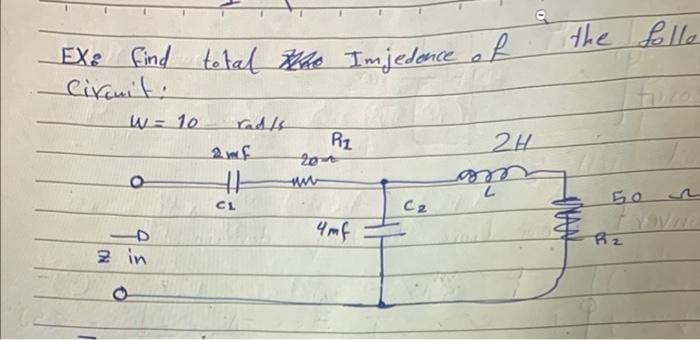 EX: find total Imjedence of the follo
Circuit:
W = 10 rad/s
2mf
20Ω
R1
2H
C1
C2
L
4mf
50 Ω
R2
Z in